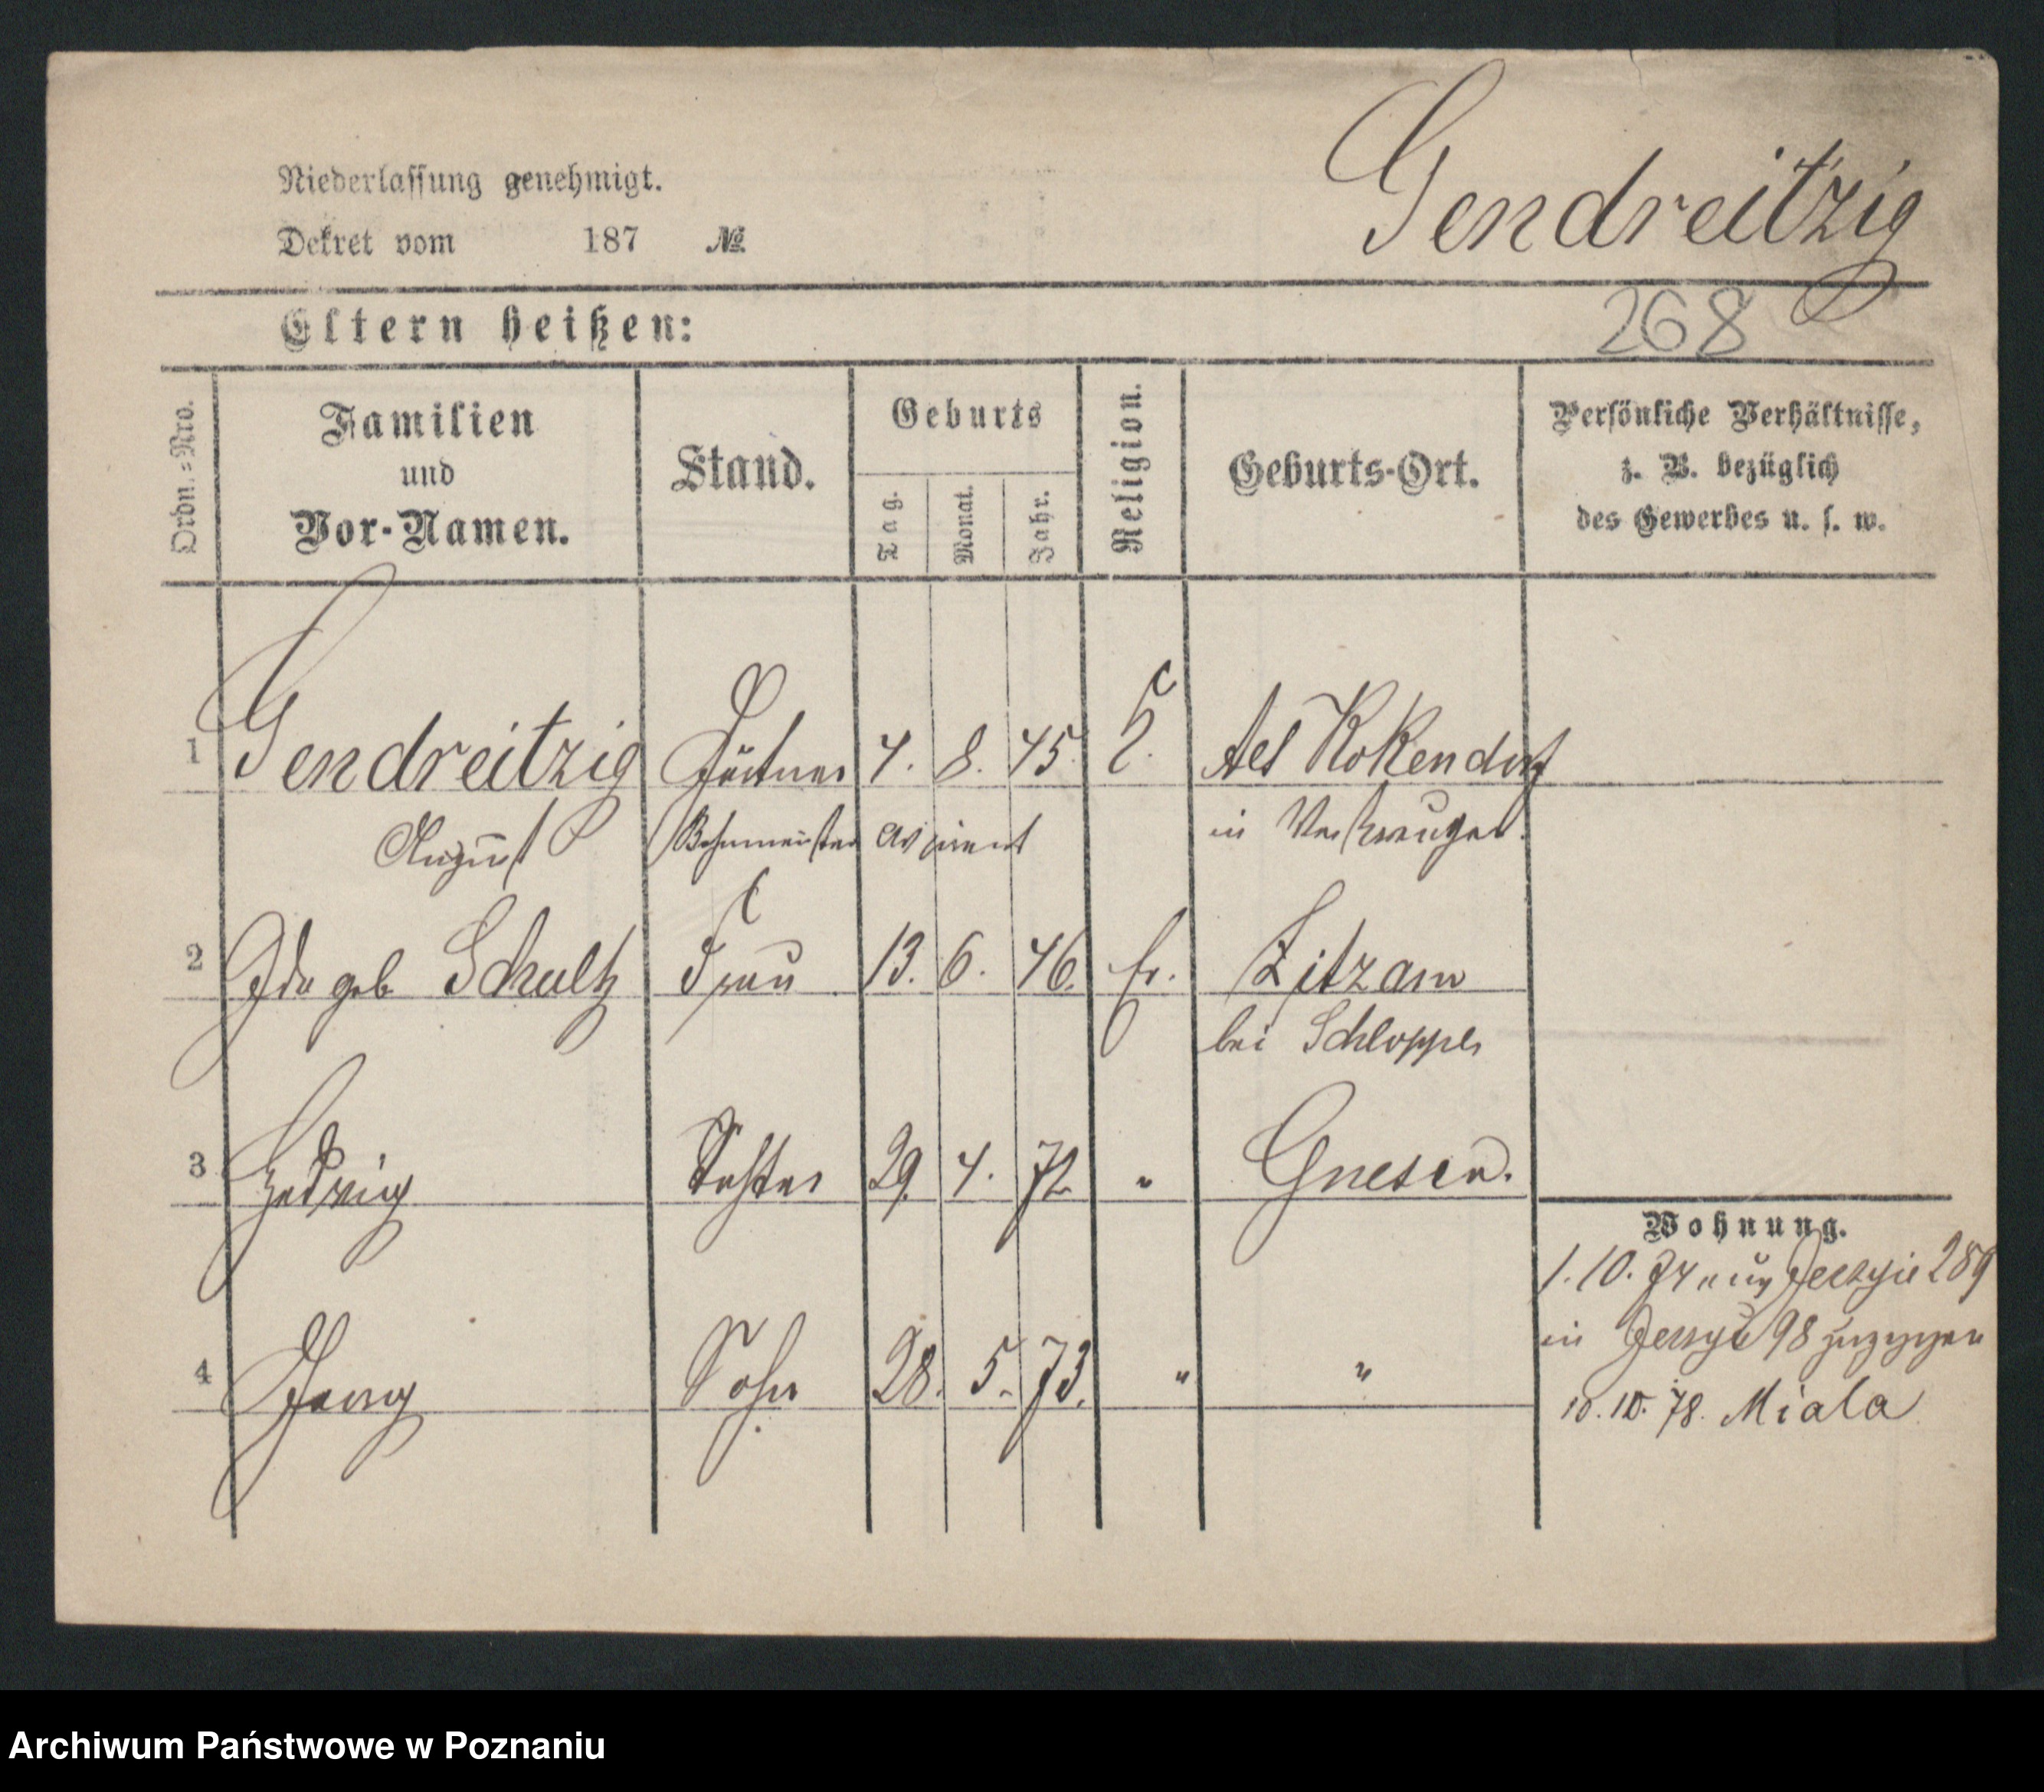 Gendreitzig
Niederlassung genehmigt.
Dekret vom 187 №
268
Eltern heißen:
Ordn.=Nro.
Familien
und
Vor-Namen.
Stand.
Geburts
Tag.
Monat.
Jahr.
Religion.
Geburts-Ort.
Persönliche Verhältnisse,
z. B. bezüglich
des Gewerbes u. s. w.
1 Gendreitzig Gärtner 4. 8. 45. Kokendorf
August Bahnmeister in
2 Ida geb. Schultz Frau 13. 6. 46. Zitzam
bei Schloppe
3 Hedwig Tochter 29. 4. 72 " Gnesen.
4 Georg Sohn 28. 5. 73. " "
Wohnung.
1. 10. 74 aus 289
in 98 zugezogen
10. 10. 78. Miala
Archiwum Państwowe w Poznaniu